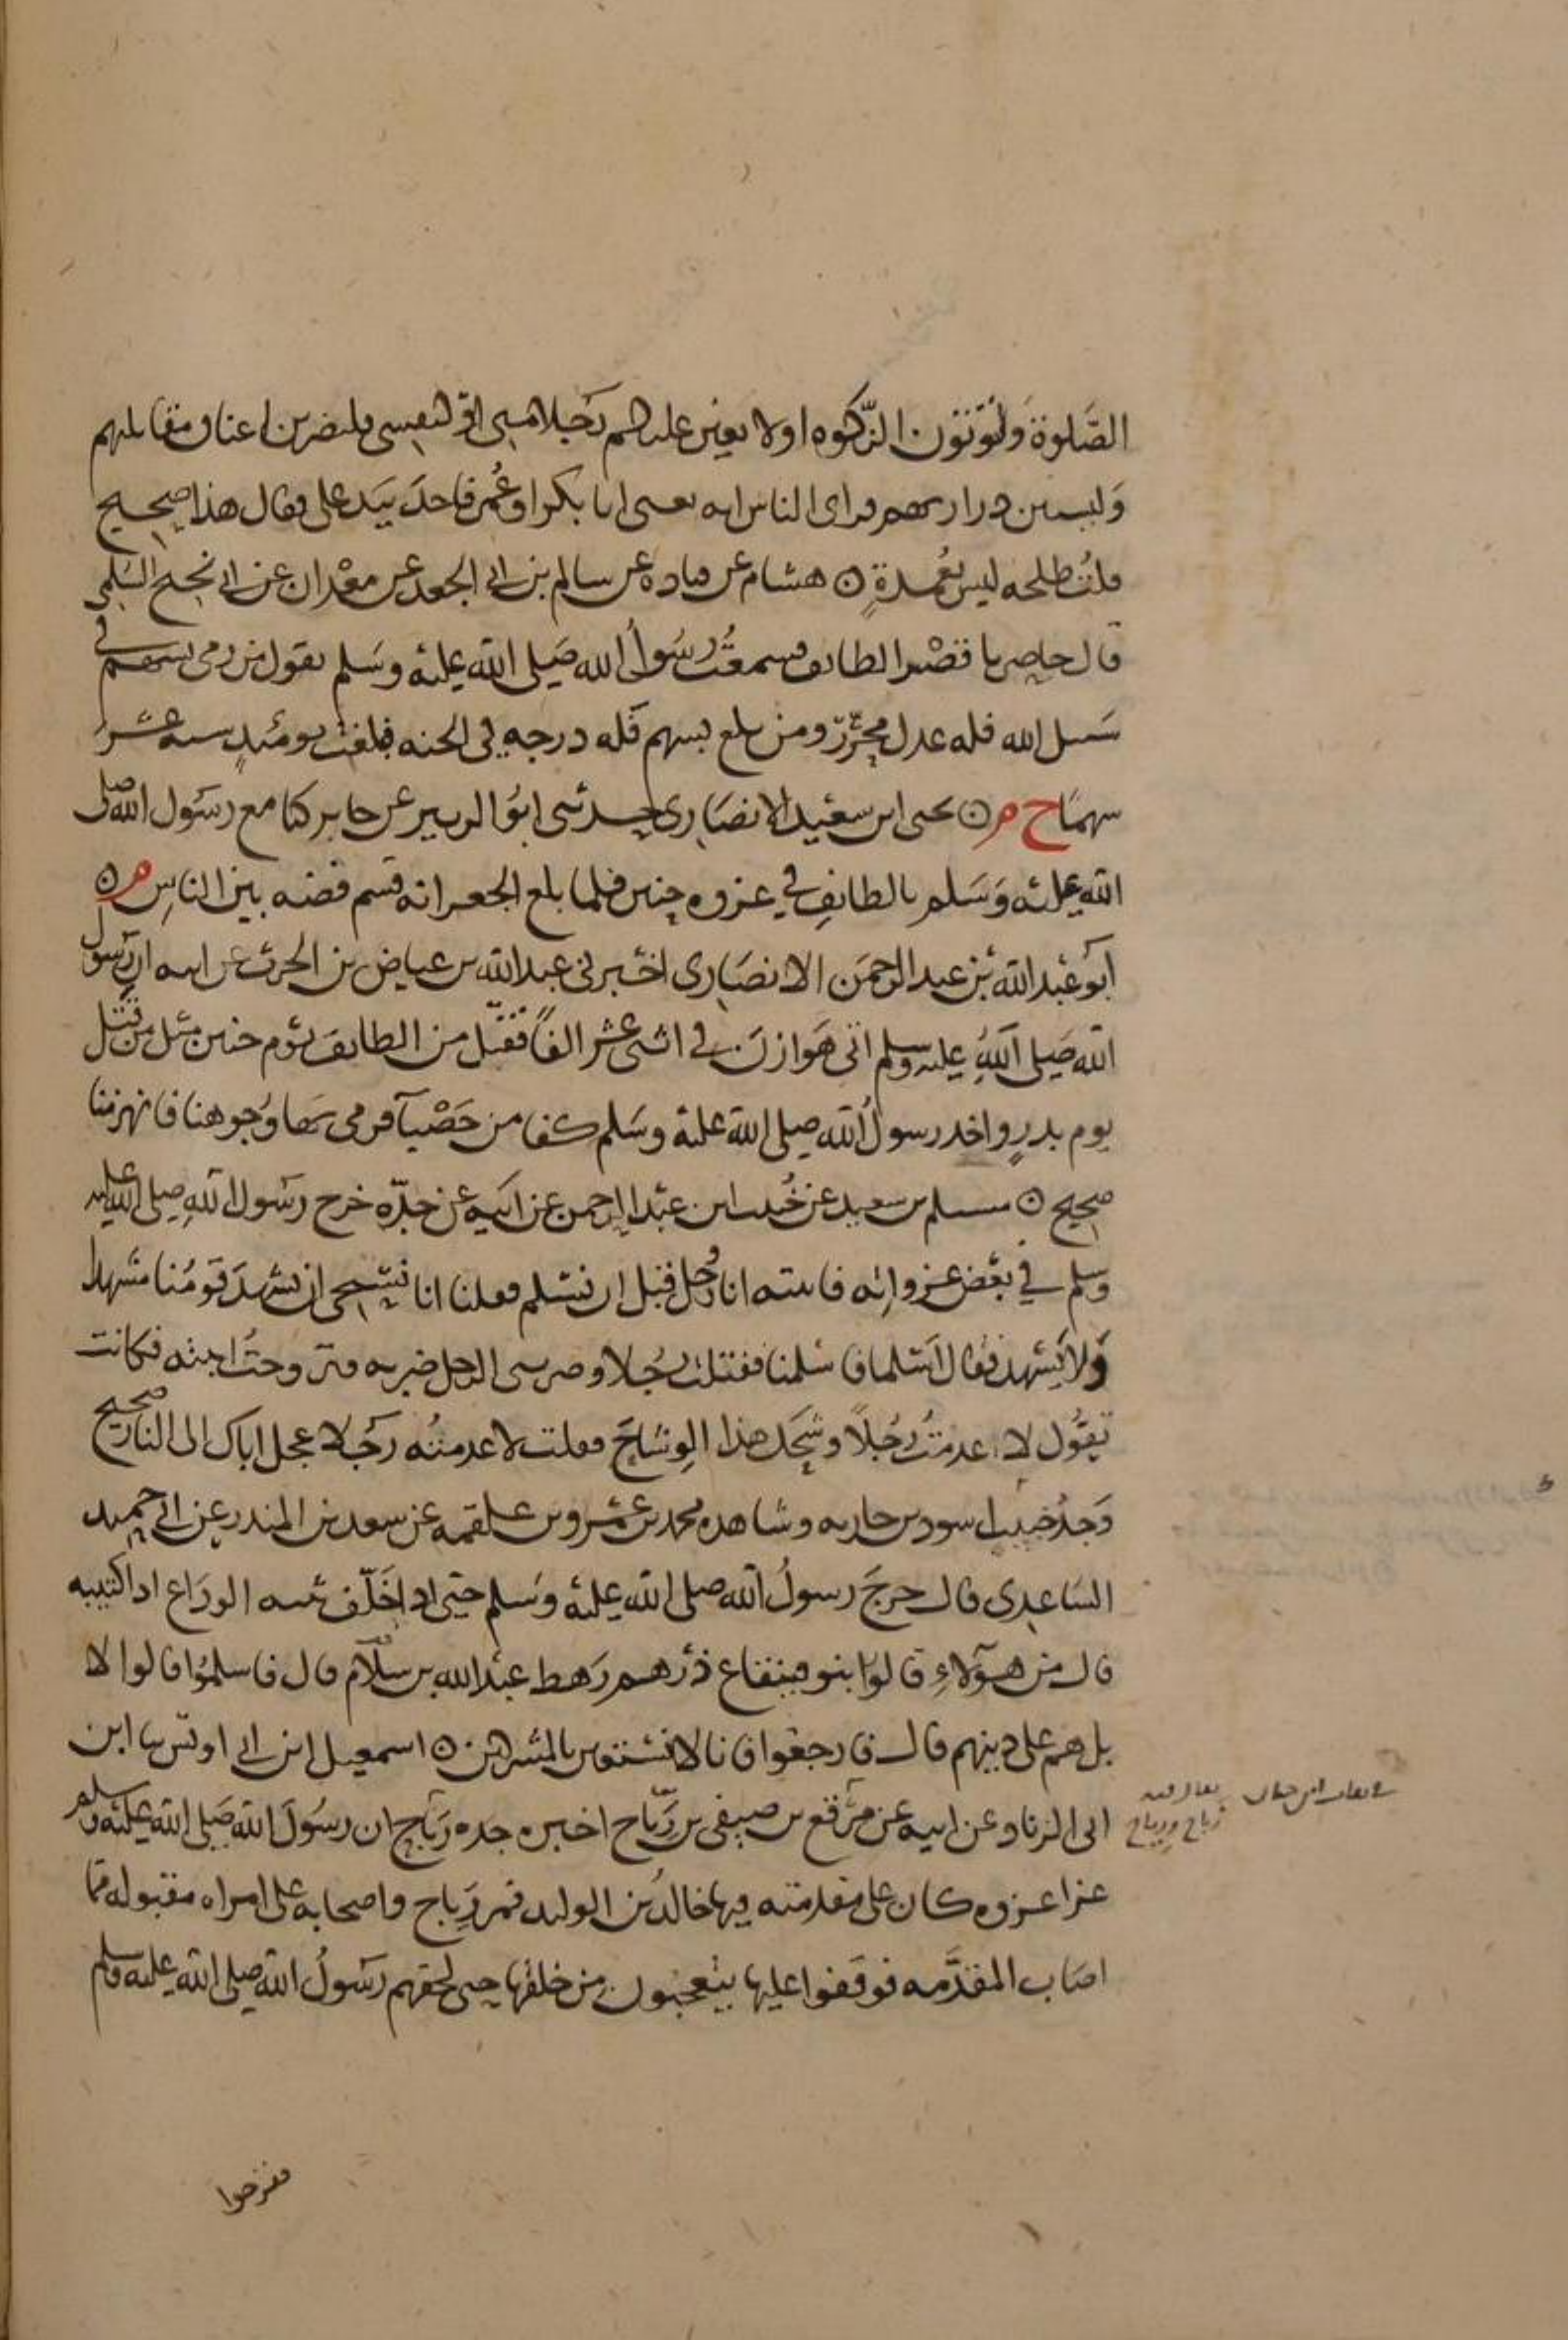 الصَّلوة وَلتؤتون الزَّكوه اولا بعثن عليهم رَجلا منى او لنفسى فليضربن اعناق مقاتلهم
وَليسبين درارىهم فراى الناس انه يعنى ابا بكر او عُمر فاخذ بيَد على فقال هذا صحيح
قلت طلحه ليس بعُمدةٍ ۞ هشام عن قتاده عن سالم بن ابى الجعد عن معْدان عن ابى نجيح السُلَمى
قال حاصرنا قصْر الطائف فسمعتُ رسُول الله صَلى الله عليه وسَلم يقول من رمى بسهم فى
سَبيل الله فله عدل محرَّرٍ ومن بلغ بسهم فَله درجه فى الجنه فبلغت يومئذٍ سته عشرَ
سهمًا ح م ۞ يحيى ابن سعيد الانصَارى حدثنى ابوُ الزبير عن جابر كنا مع رسَول الله صلى
الله عليه وَسَلم بالطائفِ فى غزوه حنين فلما بلغ الجعرانه قسم فضه بين الناسِ م ۞
ابوُ عَبد الله بْن عبد الرحمَن الانصَارى اخبرنى عبد الله بن عياض بن الحرث عن ابيه ان رَسول
الله صَلى اللهُ عليه وسلم اتى هَوازنَ فى اثنى عشر الفًا فقُتل من الطائف يوْم حنين مثل من قُتل
يوم بدرٍ واخذ رسولُ الله صلى الله عليه وسَلم كفا من حَصْبآ فرمى بها وُجوهنا فانهزمنا
صحيح ۞ مسلم بن سعيد عن خُبيب ابن عبْد الرحمن عن ابيه عن جدّه خرج رسَول اللهِ صلى الله عليه
وسلم فى بعْض غزواته فاتيته انا ورجُل قبل ان نسْلم فقلنا انا نستحيى ان يشهدَ قومُنا مشهدا
ولا نَشهد فقال اَسْلما فاسْلمنا فقتلت رجُلا وضربنى الرجل ضربه فتزوحتُ ابنته فكانت
تقوُل لا عدمتُ رجُلاً وشَّحك هذا الوِشاحَ فقلت لا عدمتُه رَجلا عجل اباك الى النار صحيح
وَجدُ خبيب اسود بن حارثه وشاهده محمد بن عمْرو بن علقمه عن سعد بن المنذر عن ابى حميد
السَاعدِى قال خرجَ رسولُ الله صلى الله عليه وَسلم حتى اذا خَلّف ثنيه الودَاع اذا كتيبه
قال من هؤلاءِ قالوا بنو قينقاع ذرهم رَهط عبْد الله بن سلَّام قال فاسلموُا قالوا لا
بل هم على دينهم قال فارجعوا فانا لا نستعين بالمشركين ۞ اسمعيل ابن ابى اويْس ثنا ابن
ابى الزناد عن ابيه عن مرَّقع بن صيفى بن رَباح اخبره جده رَباح ان رسُولَ الله صَلى الله عليْه وسلم
غزا غزوه كان على مقدمته فيها خالدُ بن الوليد فمر رَباح واصحابه على امراه مقبوله مما
اصَاب المقدَّمه فوقفوا عليها يتعجبون من خلقها حتى لحقهم رسَولُ الله صلى الله عليه وسلم
يقال فيه
رَباح ورياح
ففرجوا